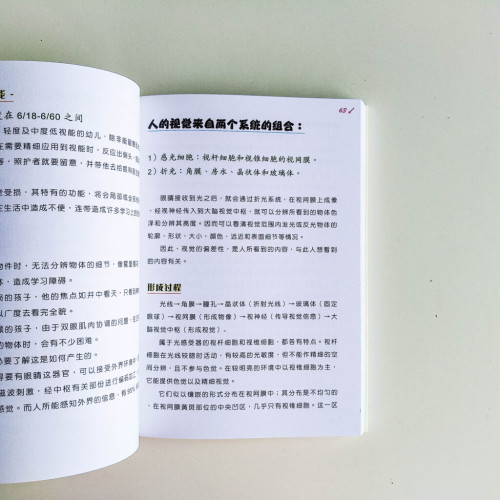 在 6/18-6/60 之间
轻度及中度低视能的幼儿，除非能量
在需要精细应用到视能时，反应出
等，照护者就要留意，并带他去给眼
受损，其特有的功能，将会局部或全
在生活中造成不便，连带造成许多学习上
物件时，无法分辨物体的细节，
体，造成学习障碍。
的孩子，他的焦点如井中看天，只看到
以广度去看完全貌。
的孩子，由于双眼肌肉协调的问题，
的物体时，会有不少困难。
必要了解这是如何产生的。
得要有眼睛这器官，可以接受外界环境中
磁波刺激，经中枢有关部份进行编码加工
感觉。而人所能感知外界的信息，有
63
人的视觉来自两个系统的组合：
1）感光细胞：视杆细胞和视锥细胞的视网膜。
2）折光：角膜、房水、晶状体和玻璃体。
眼睛接收到光之后，就会通过折光系统，在视网膜上成像
，经视神经传入到大脑视觉中枢，就可以分辨所看到的物体色
泽和分辨其亮度。因而可以看清视觉范围内发光或反光物体的
轮廓，形状，大小，颜色，远近和表面细节等情况。
因此，视觉的偏差性，是人所看到的内容，与此人想看到
的内容有关。
形成过程
光线→角膜→瞳孔→晶状体（折射光线）→玻璃体（固定
眼球）→视网膜（形成物像）→视神经（传导视觉信息）→大
脑视觉中枢（形成视觉）。
属于光感受器的视杆细胞和视锥细胞，都各有特点。视杆
细胞在光线较暗时活动，有较高的光敏度，但不能作精细的空
间分辨，且不参与色觉。在较明亮的环境中以视锥细胞为主，
它能提供色觉以及精细视觉。
它们似以镶嵌的形式分布在视网膜中；其分布是不均匀的
，在视网膜黄斑部位的中央凹区，几乎只有视锥细胞。这一区